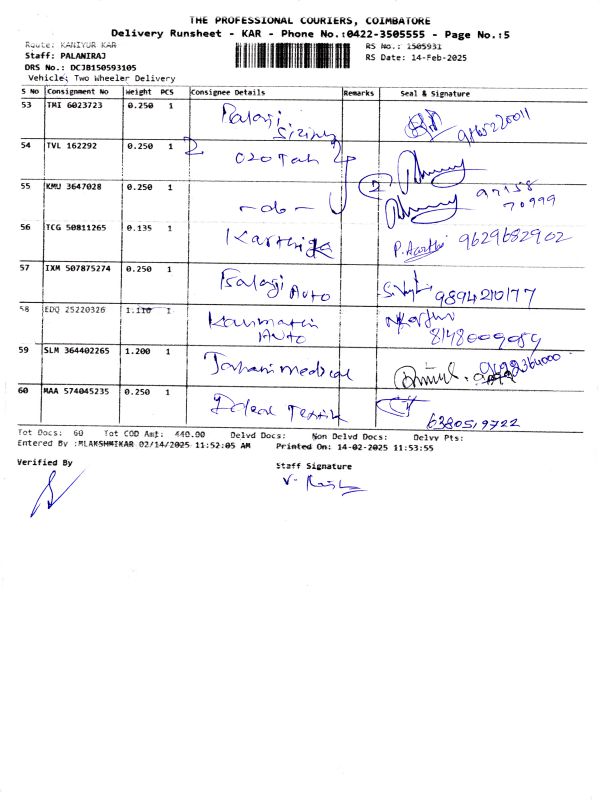 THE PROFESSIONAL COURIERS, COIMBATORE
Delivery Runsheet - KAR - Phone No.:0422-3505555 - Page No.:5
Route: KANIYUR KAR
RS No.: 1505931
Staff: PALANIRAJ
RS Date: 14-Feb-2025
DRS No.: DCJB150593105
Vehicle: Two Wheeler Delivery
S No Consignment No Weight PCS Consignee Details Remarks Seal & Signature
53 TMI 6023723 0.250 1 Balaji Sizing 
54 TVL 162292 0.250 1
55 KMU 3647028 0.250 1 -do- 2 97158 70999
56 TCG 50811265 0.135 1 Karthika 9629682902
57 IXM 507875274 0.250 1 Balaji Auto 9894210177
58 EDQ 25220326 1.110 1 Auto 8148009089
59 SLM 364402265 1.200 1 medical
60 MAA 574045235 0.250 1 Ideal 6380519722
Tot Docs: 60 Tot COD Amt: 440.00 Delvd Docs: Non Delvd Docs: Delvy Pts:
Entered By :MLAKSHMIKAR 02/14/2025 11:52:05 AM Printed On: 14-02-2025 11:53:55
Verified By
Staff Signature